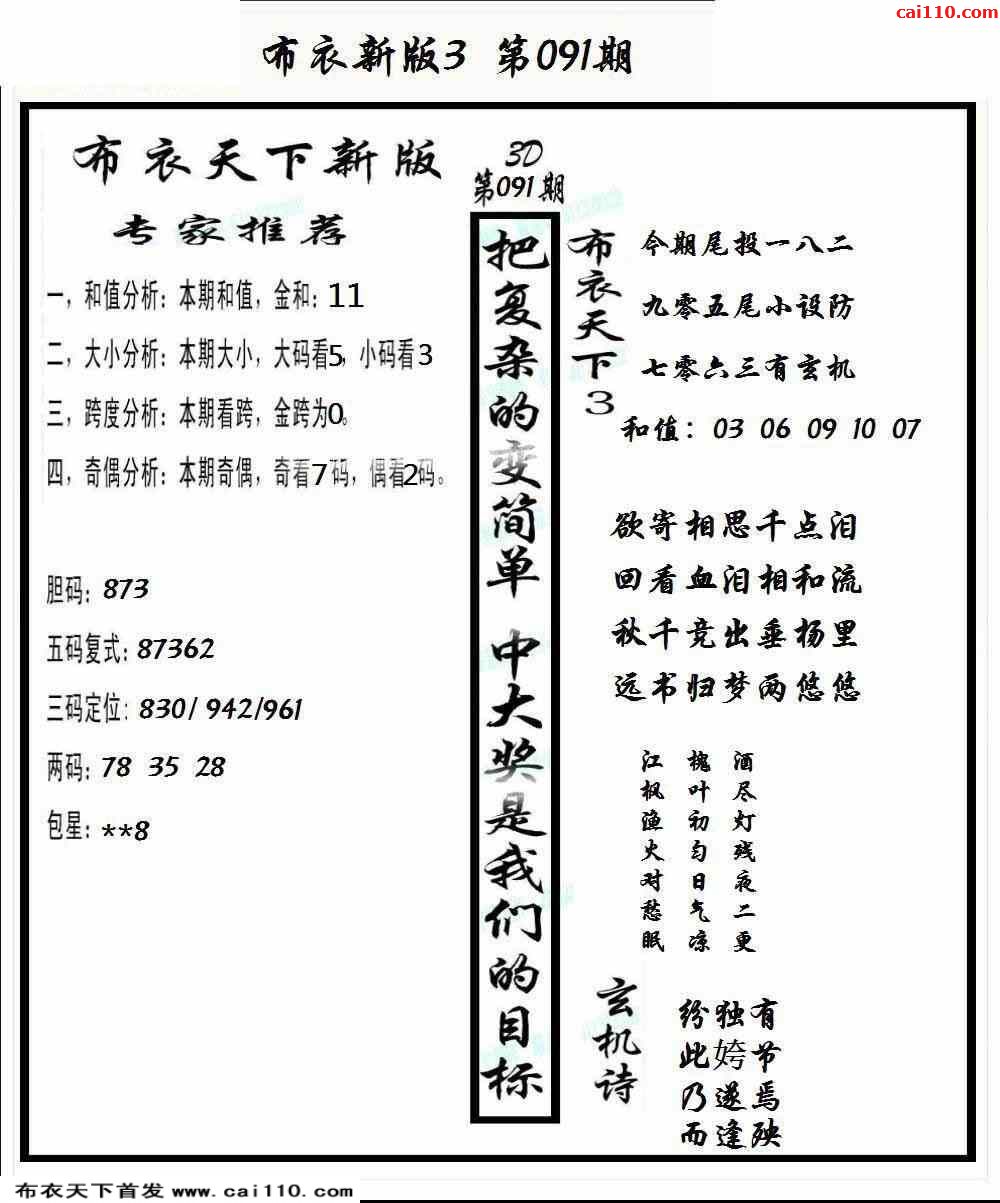 cai110.com
布衣新版3 第091期
布衣天下新版
专家推荐
一，和值分析：本期和值，金和：11
二，大小分析：本期大小，大码看5，小码看3
三，跨度分析：本期看跨，金跨为0。
四，奇偶分析：本期奇偶，奇看7码，偶看2码。
胆码：873
五码复式：87362
三码定位：830/ 942/961
两码：78 35 28
包星：**8
3D
第091期
把复杂的变简单 中大奖是我们的目标
布衣天下3
今期尾投一八二
九零五尾小设防
七零六三有玄机
和值： 03 06 09 10 07
欲寄相思千点泪
回看血泪相和流
秋千竞出垂杨里
远书归梦两悠悠
酒尽灯残夜二更
槐叶初匀日气凉
江枫渔火对愁眠
玄机诗
纷独有
此姱节
乃遂焉
而逢殃
布衣天下首发 www.cai110.com